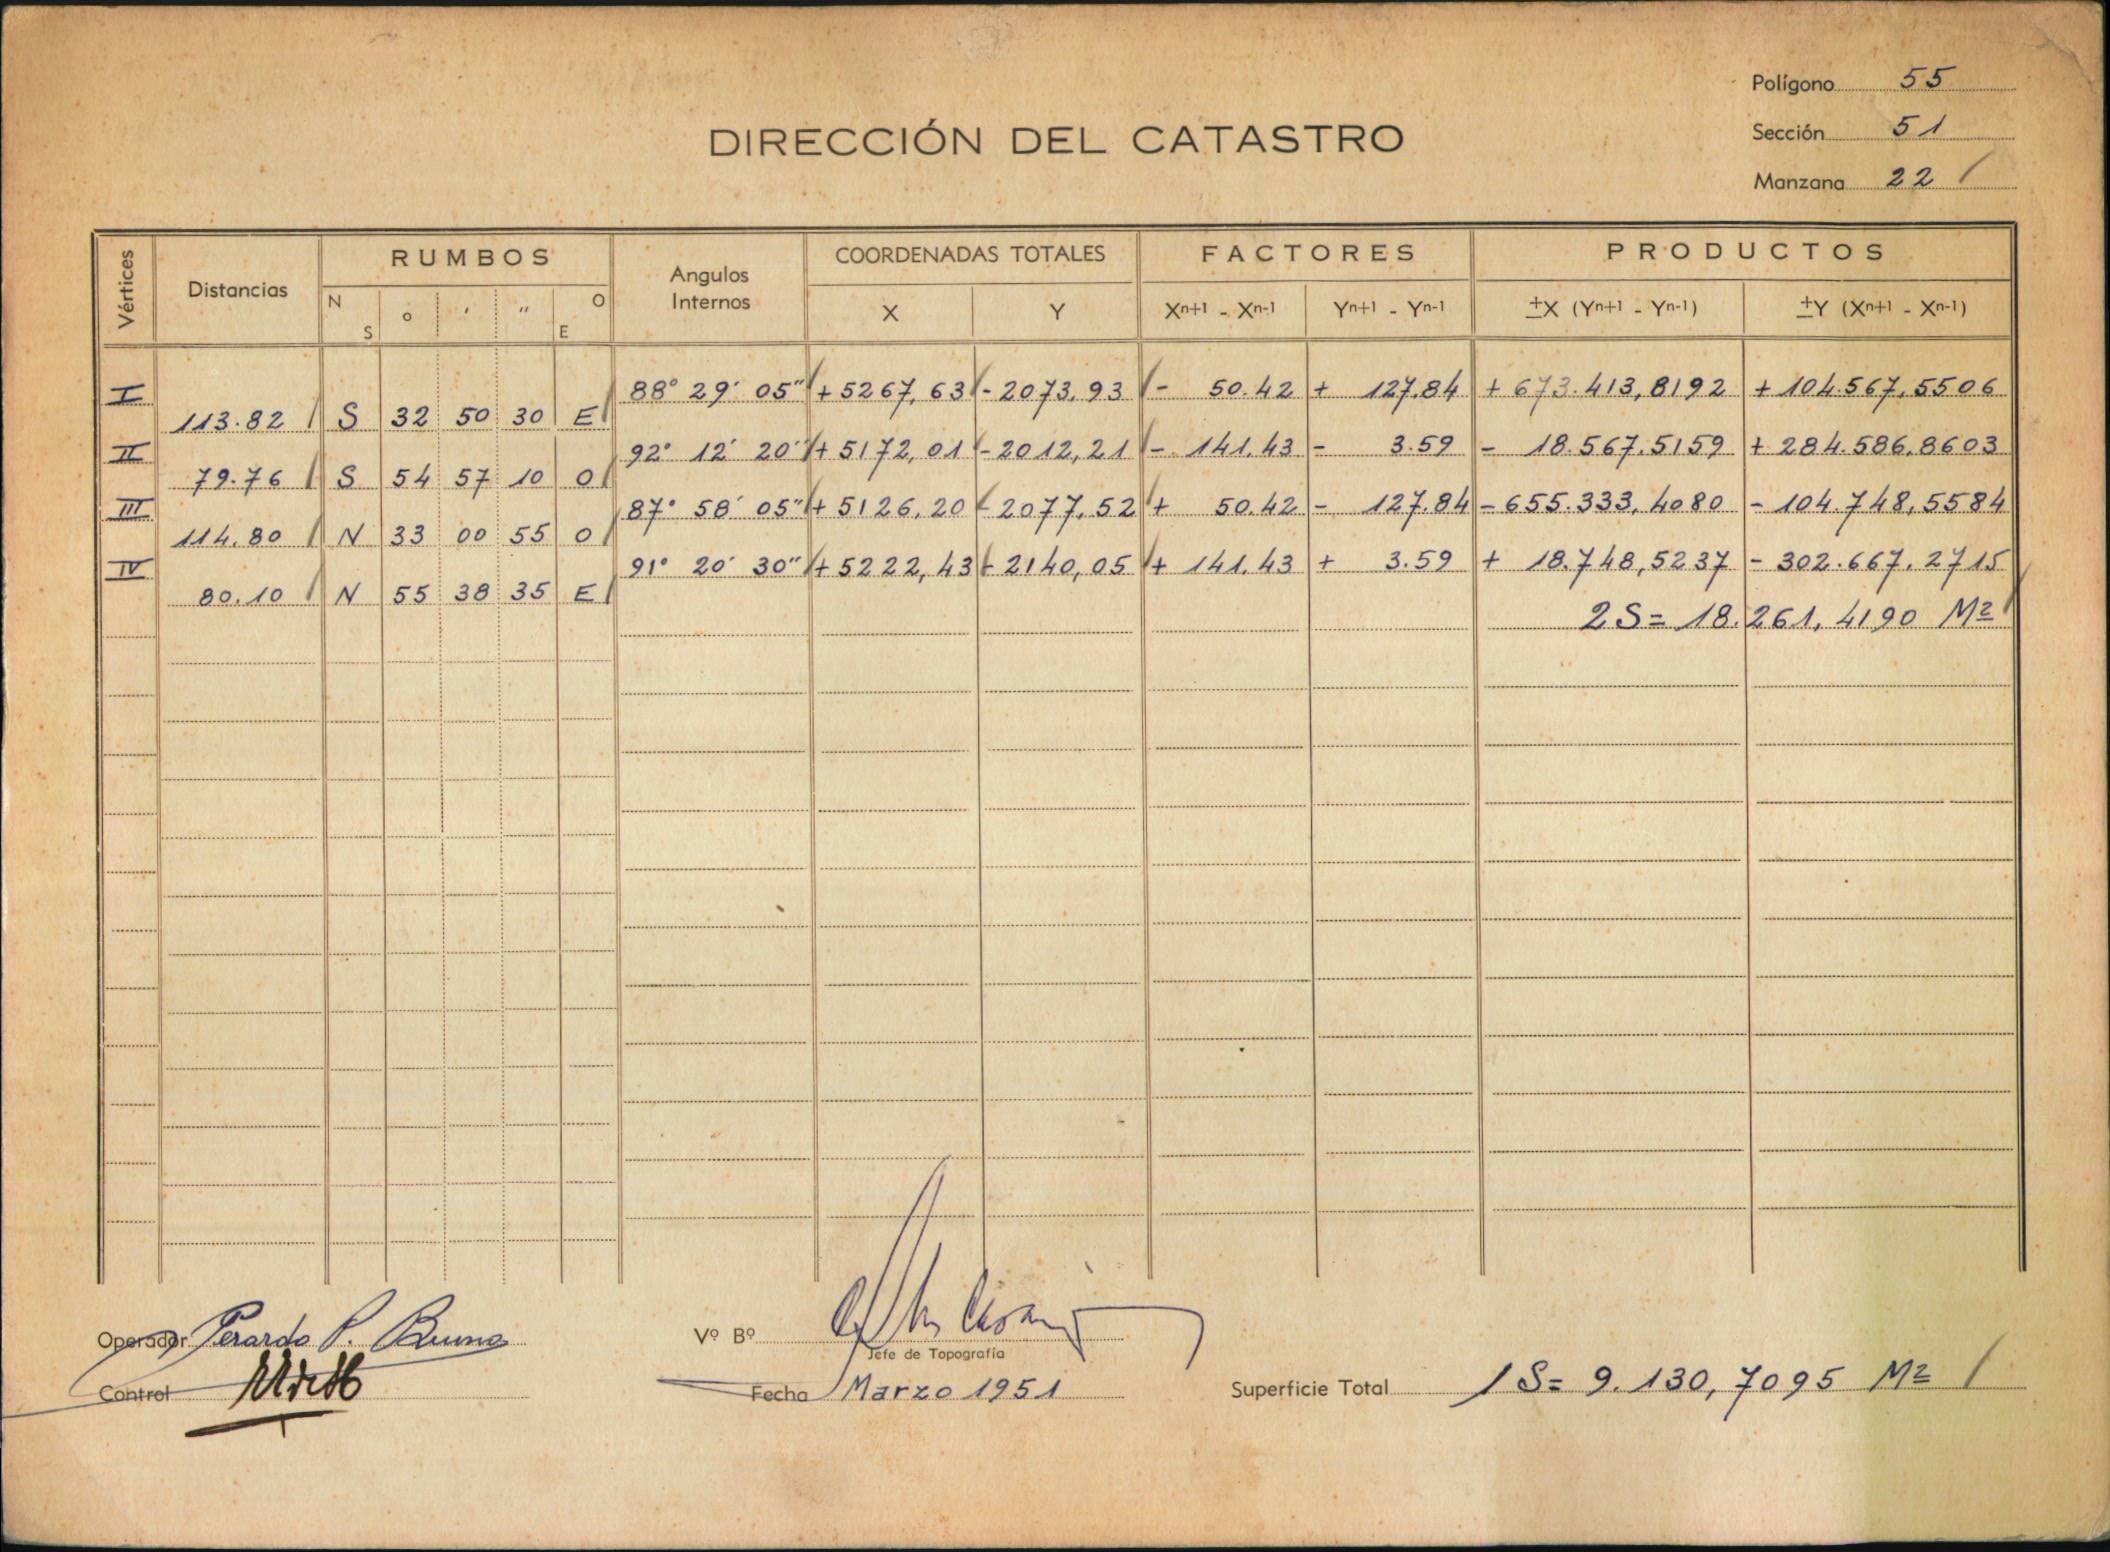 Polígono 55
DIRECCIÓN DEL CATASTRO
Sección 51
Manzana 22
Vértices Distancias RUMBOS Angulos Internos COORDENADAS TOTALES FACTORES PRODUCTOS
N S o ' '' O E X Y Xn+1 - Xn-1 Yn+1 - Yn-1 ±X (Yn+1 - Yn-1) ±Y (Xn+1 - Xn-1)
I 88° 29' 05" +5267,63 -2073,93 - 50.42 + 127.84 + 673.413,8192 + 104.567,5506
113.82 S 32 50 30 E
II 92° 12' 20" +5172,01 -2012,21 - 141.43 - 3.59 - 18.567,5159 + 284.586,8603
79.76 S 54 57 10 O
III 87° 58' 05" +5126,20 -2077,52 + 50.42 - 127.84 -655.333,4080 - 104.748,5584
114.80 N 33 00 55 O
IV 91° 20' 30" +5222,43 -2140,05 + 141.43 + 3.59 + 18.748,5237 - 302.667,2715
80.10 N 55 38 35 E
2S= 18.261,4190 M2
Operador P. Bruno
Vº Bº
Jefe de Topografía
Control
Fecha Marzo 1951
Superficie Total 1S= 9.130,7095 M2